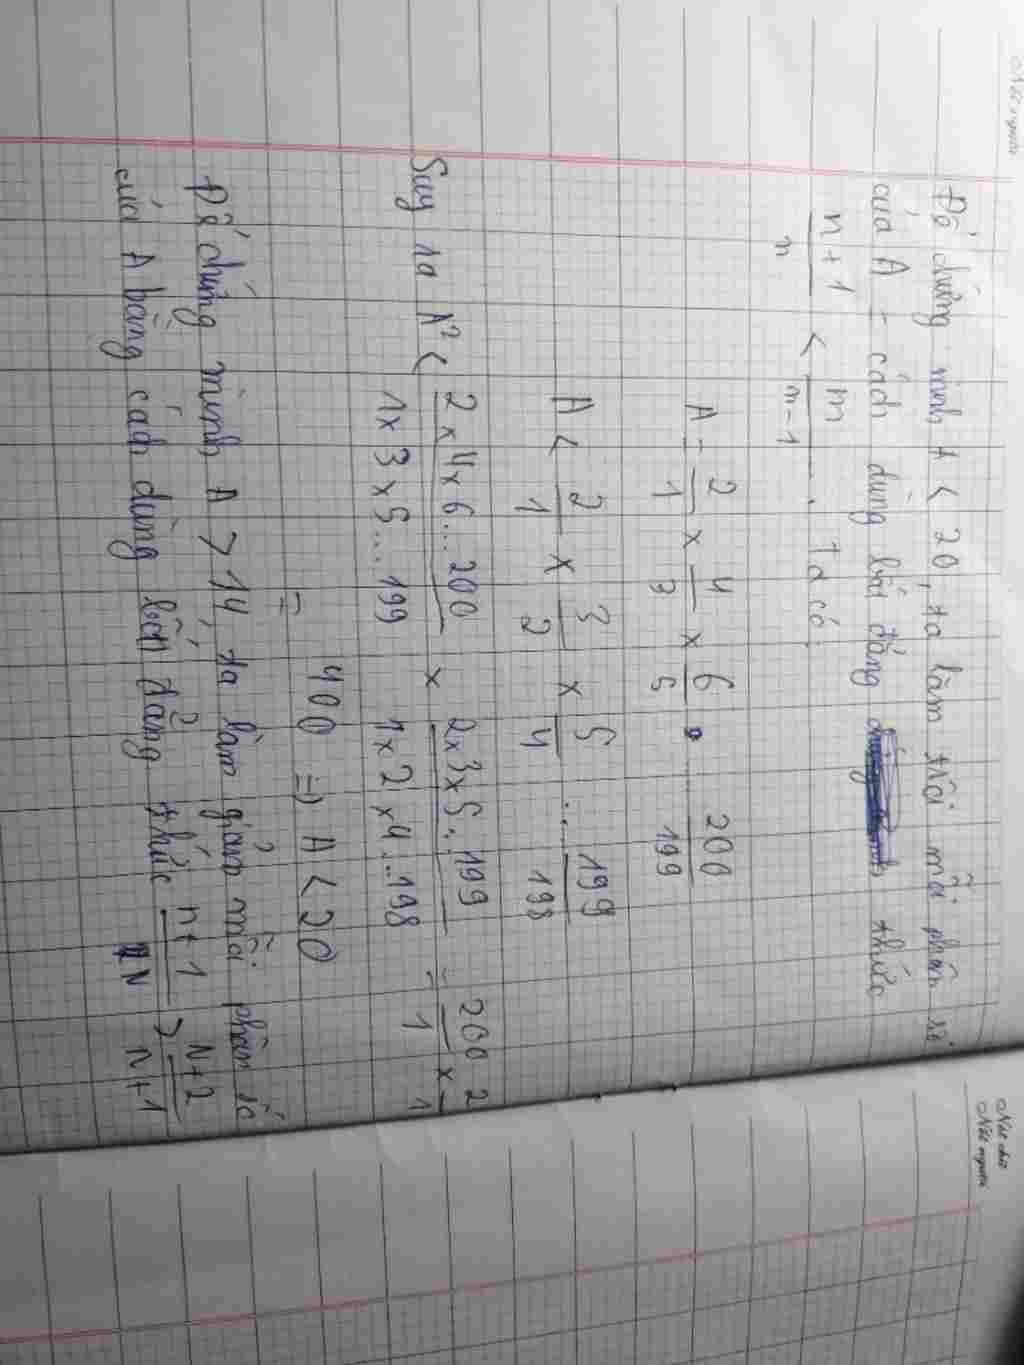 Nét người
Để chứng minh A < 20, ta làm trội mỗi phân số
của A - cách dùng bất đẳng thức
n+1/n < n/n-1 ... Ta có:
A = 2/1 x 4/3 x 6/5 . 200/199
A < 2/1 x 3/2 x 5/4 .... 199/198
Suy ra A² < 2x4x6...200/1x3x5...199 x 2x3x5...199/1x2x4...198 = 200/1 x 2/1
= 400 => A < 20
Để chứng minh A > 14, ta làm giảm mỗi phân số
của A bằng cách dùng bất đẳng thức n+1/N > N+2/N+1
Nét chữ
Nét người